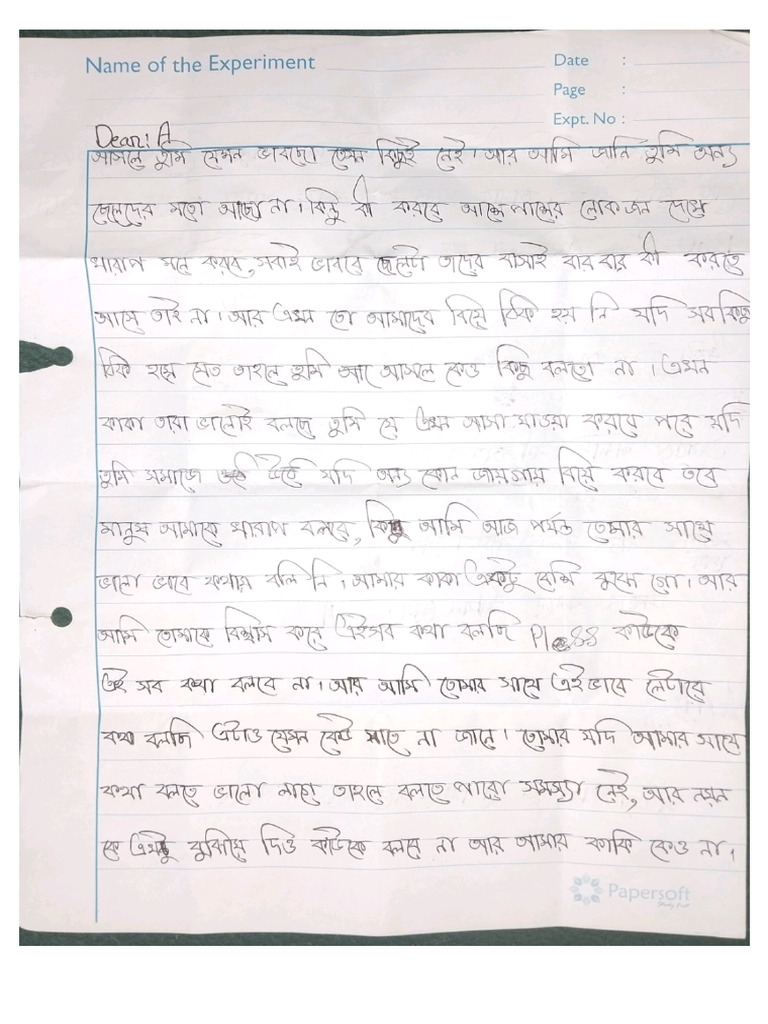 Name of the Experiment
Date :
Page :
Expt. No :
Dear: A
আসলে তুমি যেমন ভাবছো তেমন কিছুই নেই। আর আমি জানি তুমি অন্য
ছেলেদের মতো আছো না। কিন্তু কী করবে আশেপাশের লোকজন দেখে
খারাপ মনে করবে, সবাই ভাববে ছেলেটা তাদের বাসাই বার বার কী করতে
আসে তাই না। আর এখন তো আমাদের বিয়ে ঠিক হয় নি যদি সব কিছু
ঠিক হয়ে যেত তাহলে তুমি আসলে কেও কিছু বলতো না। এখন
কাকা তারা ভালোই বলছে তুমি যে এখন আসা যাওয়া করবে পরে যদি
তুমি সমাজে যদি অন্য কোন জায়গায় বিয়ে করবে তবে
মানুষ আমাকে খারাপ বলবে, কিন্তু আমি আজ পর্যন্ত তোমার সাথে
ভালো ভাবে কথায় বলি নি। আমার কাকা একটু বেশি বুঝে গো। আর
আমি তোমাকে বিশ্বাস করে এইসব কথা বলছি Pless কাউকে
এই সব কথা বলবে না। আর আমি তোমার সাথে এই ভাবে লেটারে
কথা বলছি এটাও যেমন কেউ না জানে। তোমার যদি আমার সাথে
কথা বলতে ভালো লাগে তাহলে বলতে পারো সমস্যা নেই, আর নয়ন
কে একটু বুঝিয়ে দিও কাউকে বলবে না আর আমার কাকি কেও না।
Papersoft